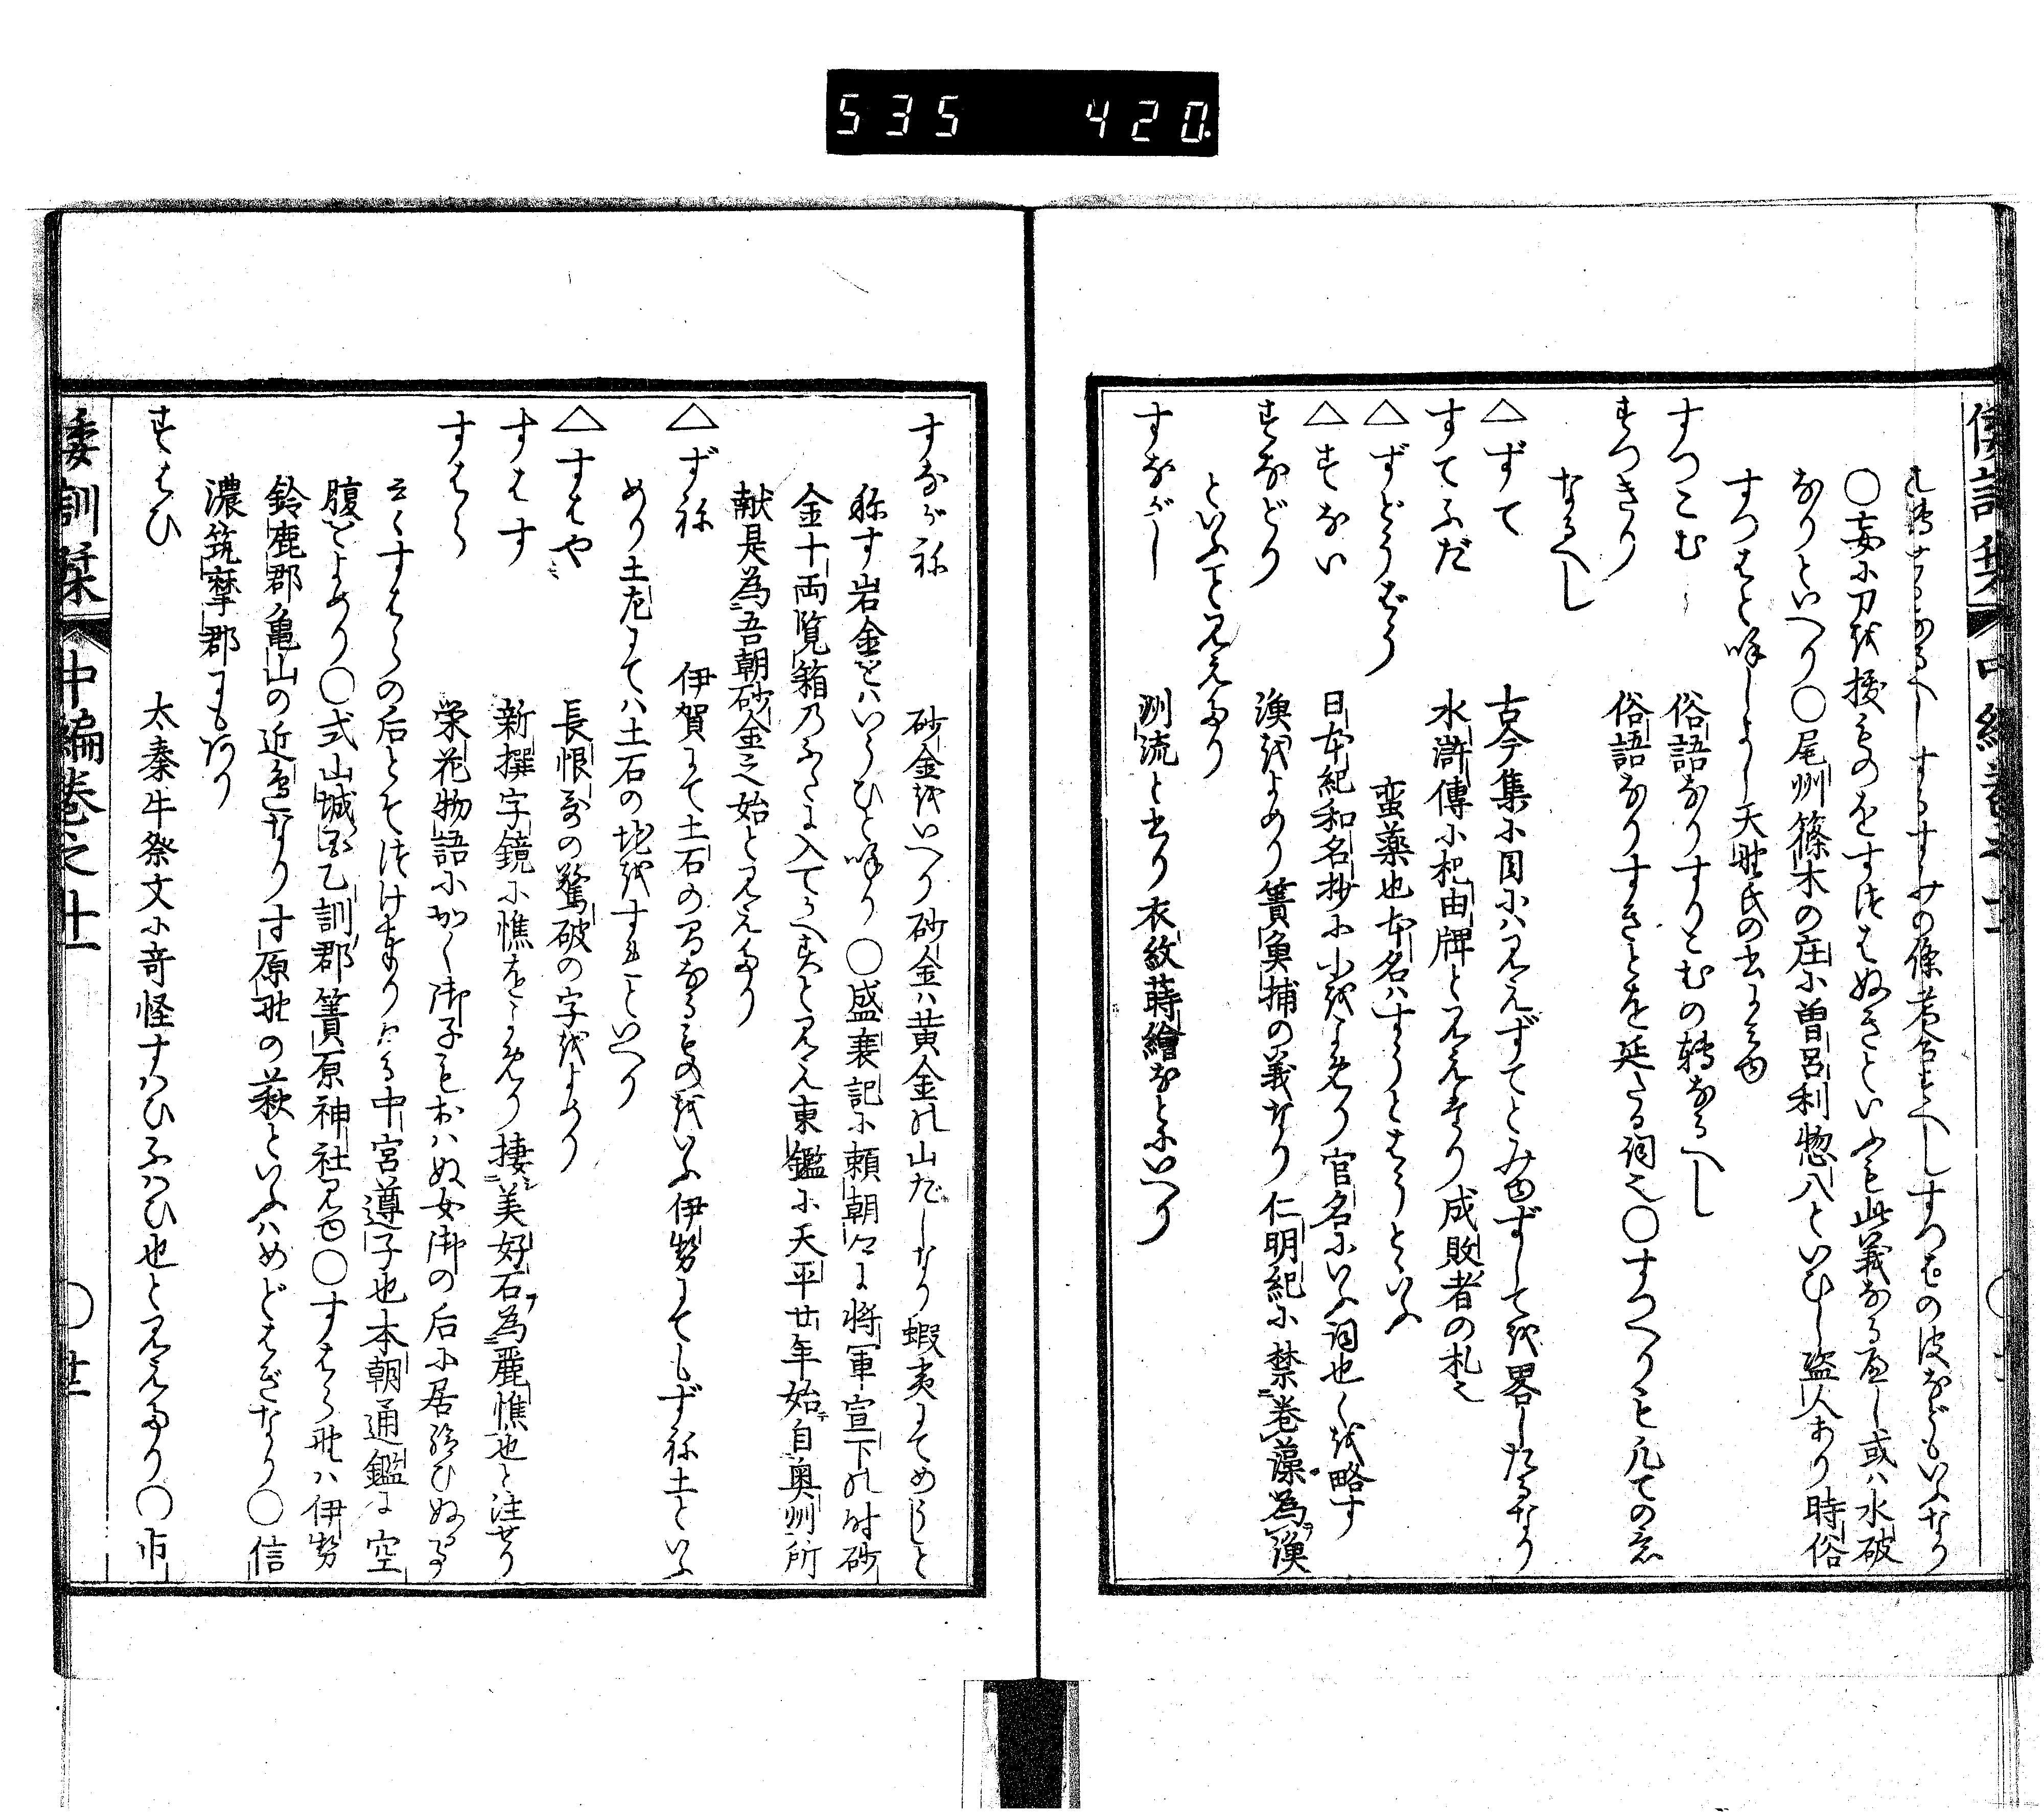 535 420.
○妄に刀を抜ものをすはぬきといふも此義なるへし或ハ水破
なりといへり○尾州篠木の庄に曽呂利惣八といひし盗人あり時俗
すつはと呼しよし天野氏の書に見ゆ
すつこむ 俗語なりすりこむの轉なるへし
すつきり 俗語なりすきとを延たる詞也○すつへりも凡ての意
なるへし
△ずて 古今集に目にハみえずてとみゆずしてを畧したるなり
すてふだ 水滸傳に杞由牌とみえたり成敗者の札也
△ずどうばう 蛮薬也本名ハすうとばうといふ
△すない 日本紀和名抄に小をよめり官名にいふ詞也くを略す
すなどり 漁をよめり簀魚捕の義なり仁明紀に禁巻藻為漁
といふことみえたり
すながし 洲流と書り衣紋蒔繪などにいへり
すながね 砂金をいへり砂金ハ黄金の山だしなり蝦夷にてめしと
称す岩金をハいうひと呼り○盛衰記に頼朝々に将軍宣下の時砂
金十両覧箱のふたに入てかへすとみえ東鑑に天平廿年始自奥州所
献是為吾朝砂金之始とみえたり
△ずね 伊賀にて土石の間なるものをいふ伊勢にてもずね土といふ
めり土佐にてハ土石の地をすねといへり
△すはや 長恨哥の驚破の字をよめり
すはす 新撰字鏡に憔をよめり捿美好石為麗憔也と注せり
すはら 栄花物語にかく御子もおハぬ女御の后に居給ひぬる事
云々すはらの后とそつけ奉りける中宮遵子也本朝通鑑に空
腹とよめり○式山城国乙訓郡簀原神社みゆ○すはら野ハ伊勢
鈴鹿郡亀山の近邊なりす原野の萩といふハめどはぎなり○信
濃筑摩郡にもあり
すはひ 太秦牛祭文に竒怪すハひふハひ也とみえたり○市
倭訓栞 中編巻之十一 ○廿一